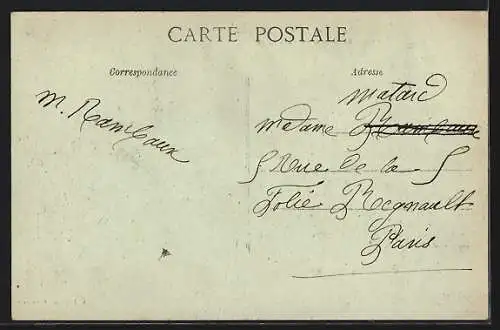 CARTE POSTALE
Correspondance
Adresse
M. Rambaux
Matard
Madame Rambaux
5 Rue de la 5
Folie Regnault
Paris